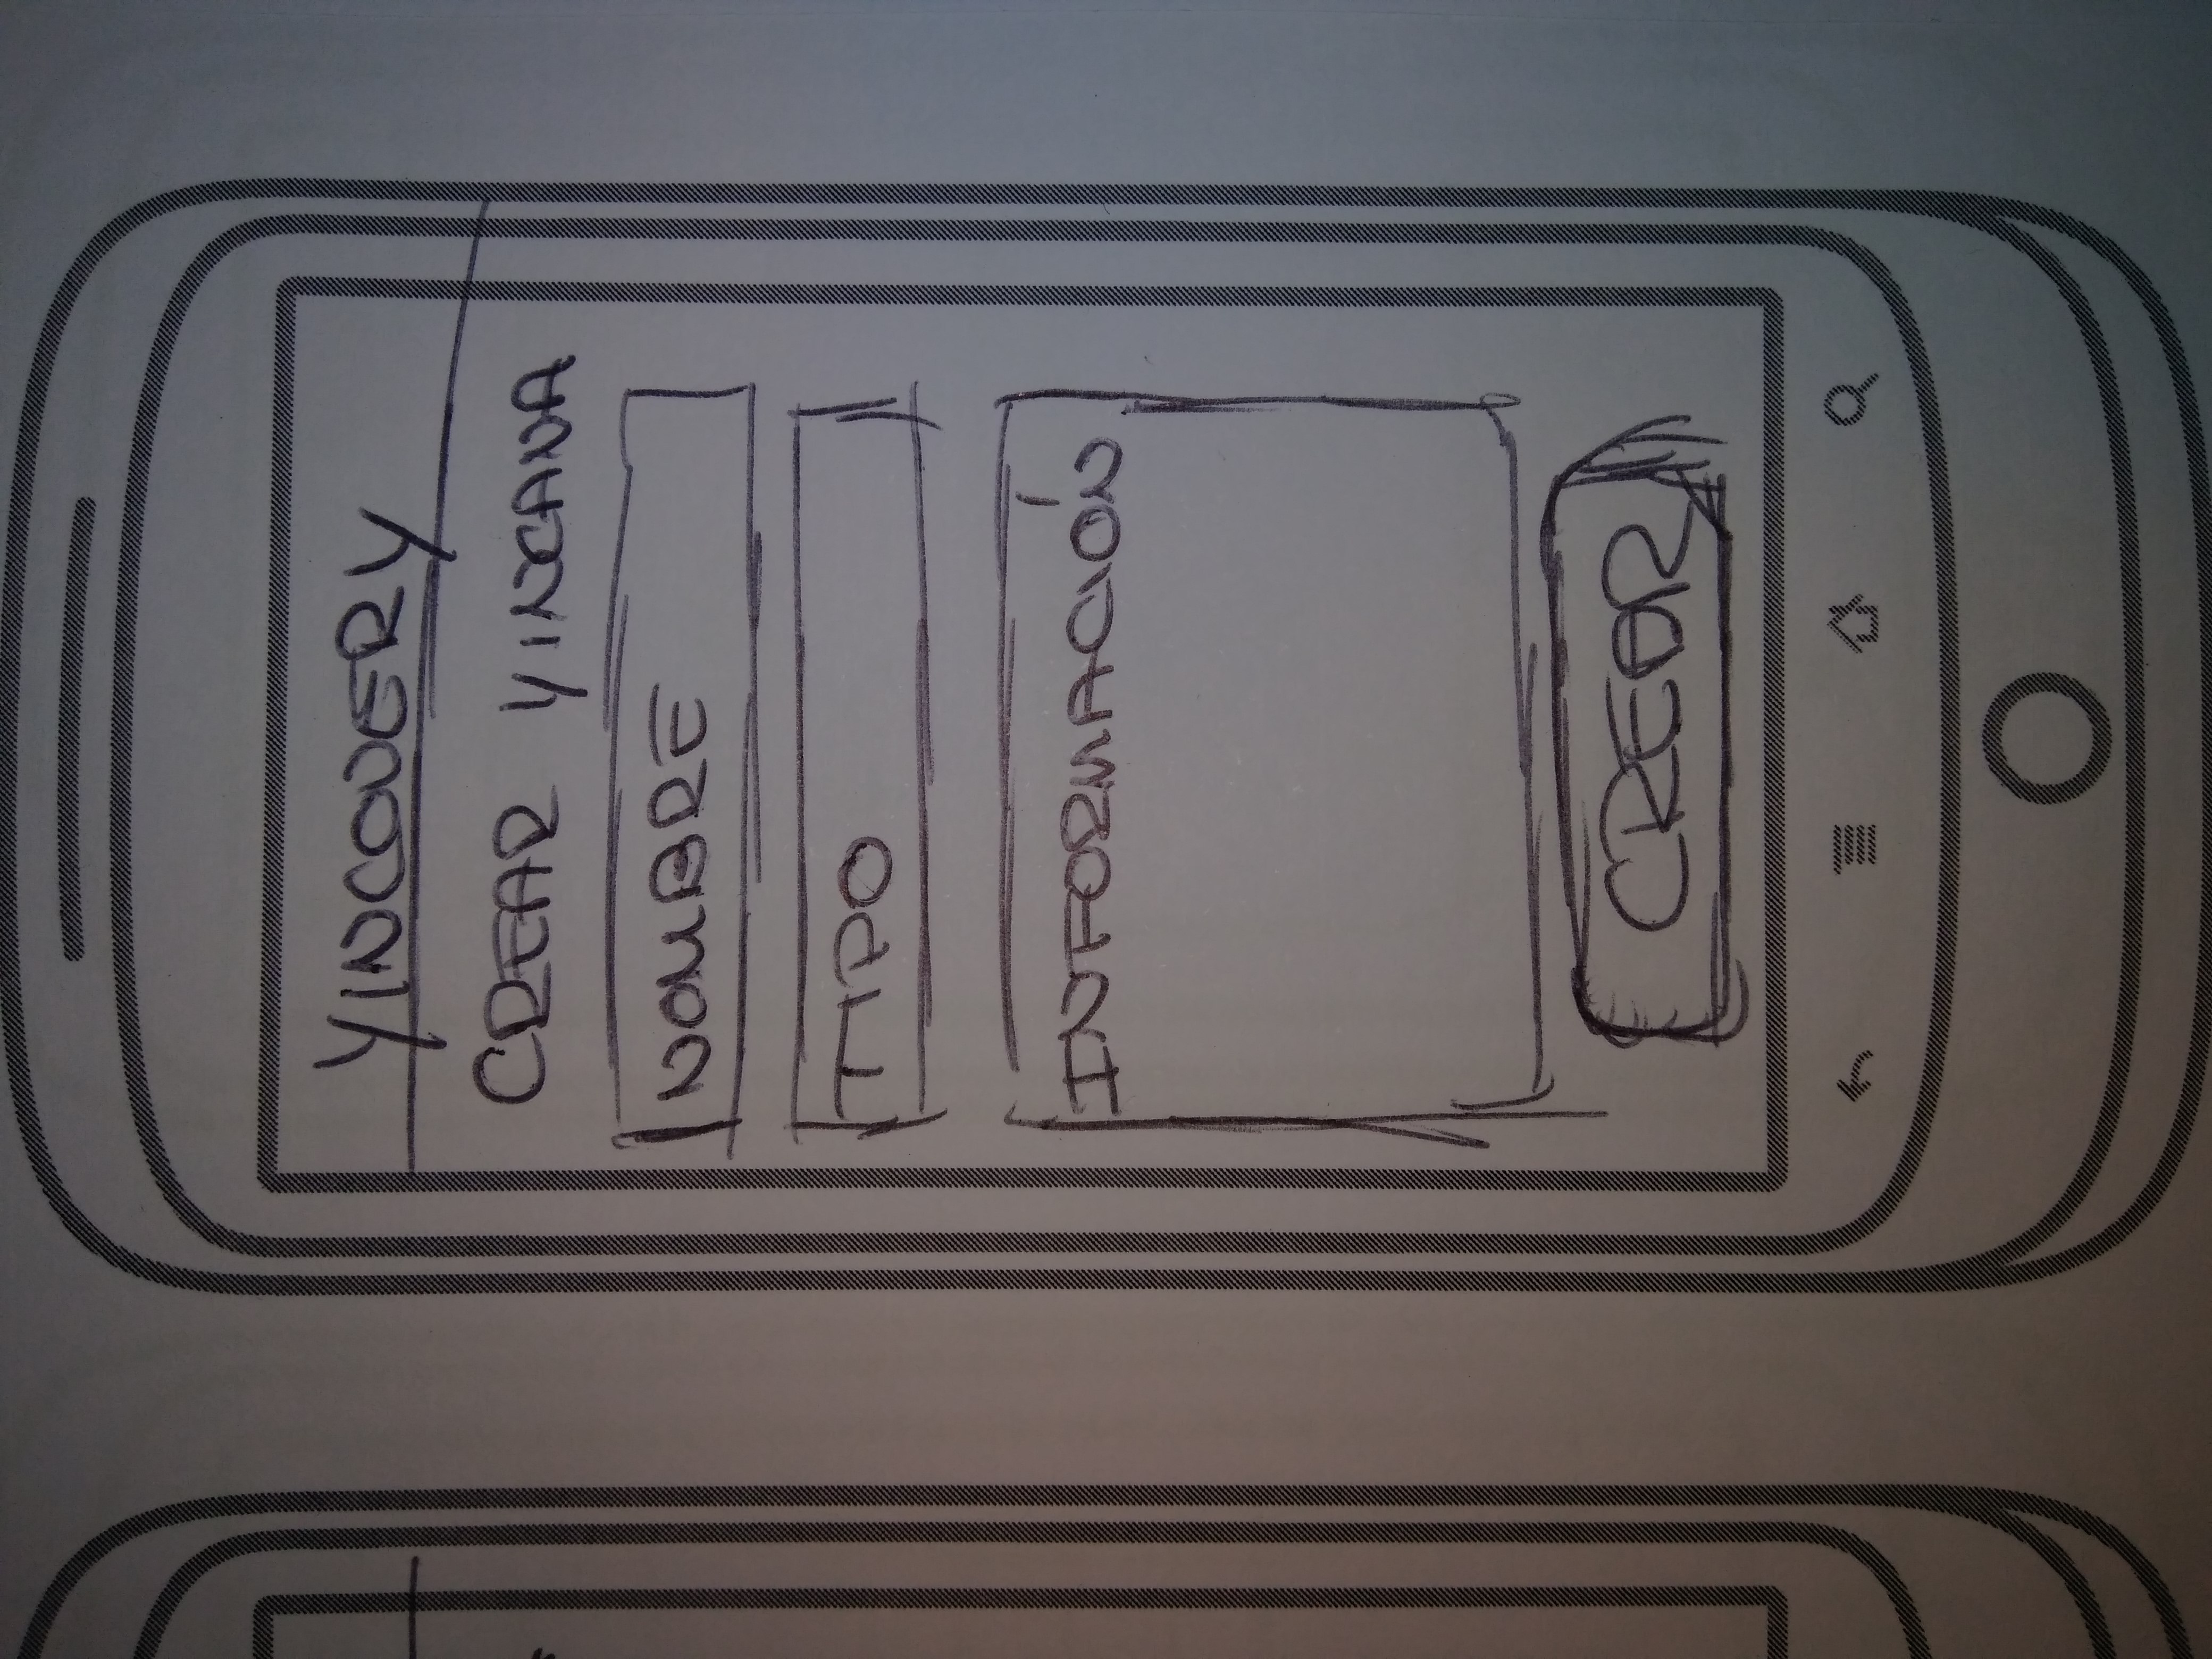 YINCOVERY
CREAR YINCANA
NOMBRE
TIPO
INFORMACIÓN
CREAR